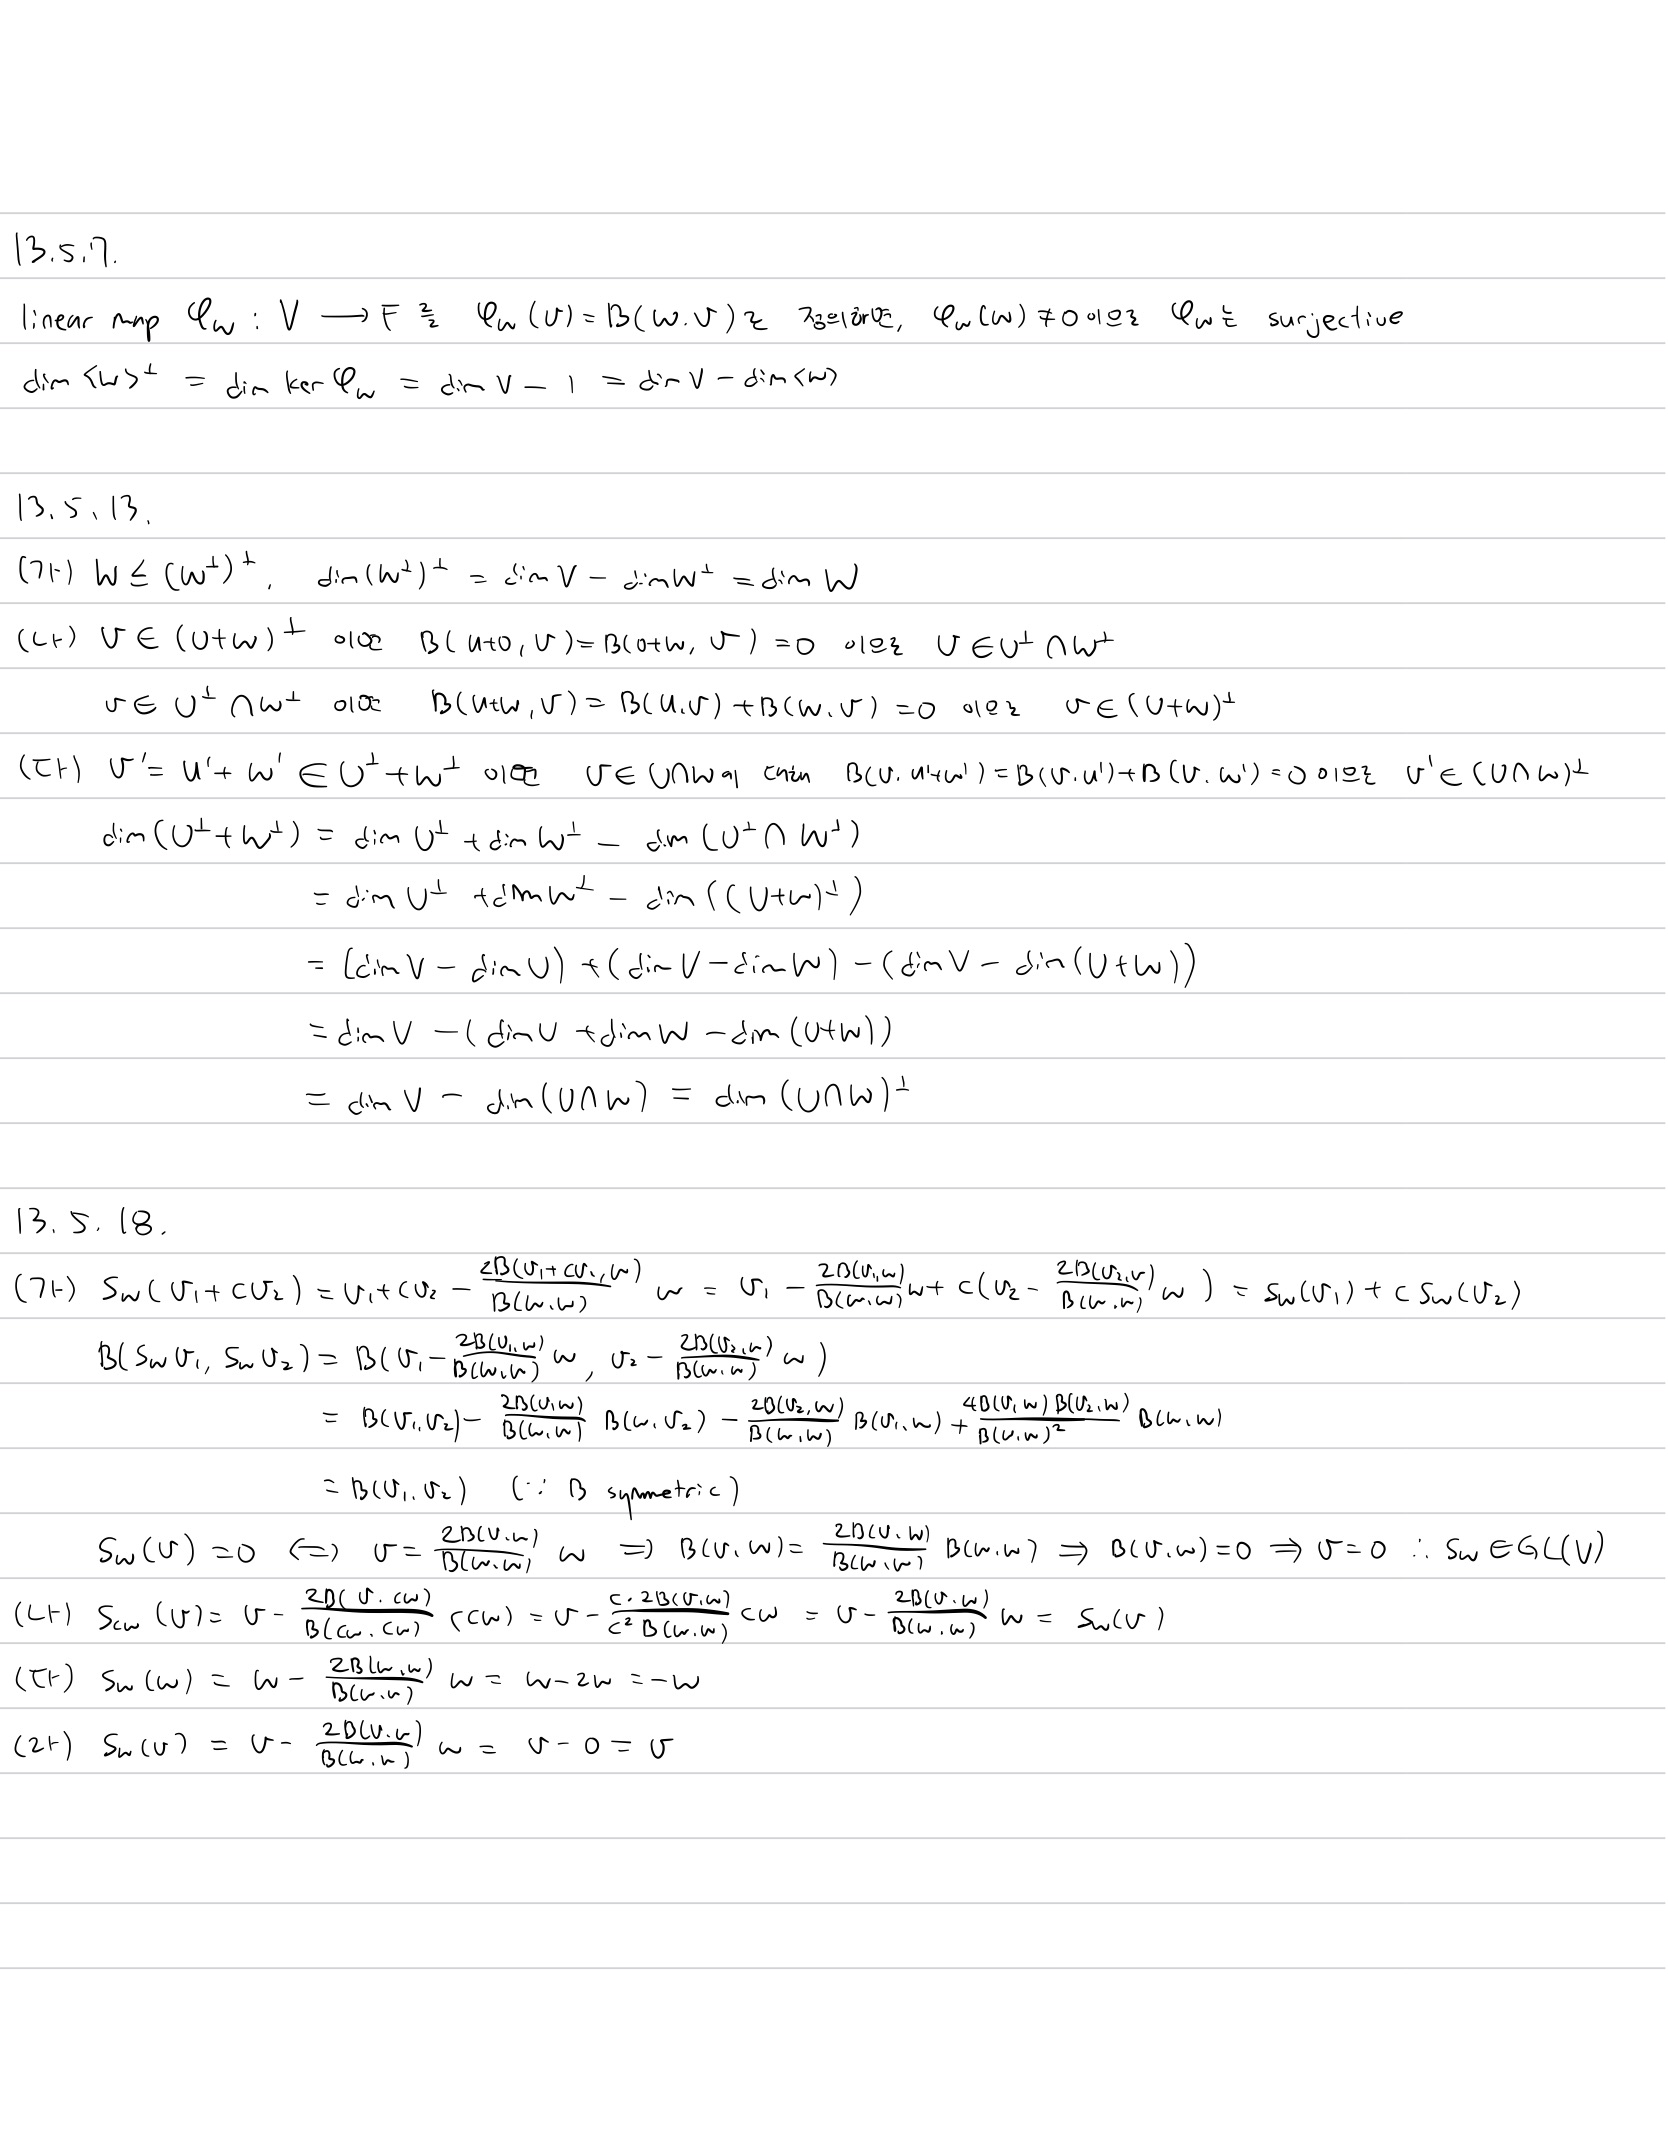 13.5.7.
linear map φ_w : V → F 를 φ_w(v) = B(w.v)로 정의하면, φ_w(w) ≠ 0 이므로 φ_w는 surjective
dim <w>^⊥ = dim ker φ_w = dim V - 1 = dim V - dim<w>
13.5.13.
(가) W ≤ (W^⊥)^⊥, dim(W^⊥)^⊥ = dim V - dim W^⊥ = dim W
(나) v ∈ (U+W)^⊥ 이면 B(u+0, v) = B(0+w, v) = 0 이므로 v ∈ U^⊥ ∩ W^⊥
v ∈ U^⊥ ∩ W^⊥ 이면 B(u+w, v) = B(u.v) + B(w.v) = 0 이므로 v ∈ (U+W)^⊥
(다) v' = u' + w' ∈ U^⊥ + W^⊥ 이면 v ∈ U∩W에 대해 B(v. u'+w') = B(v.u') + B(v.w') = 0 이므로 v' ∈ (U∩W)^⊥
dim(U^⊥ + W^⊥) = dim U^⊥ + dim W^⊥ - dim(U^⊥ ∩ W^⊥)
= dim U^⊥ + dim W^⊥ - dim((U+W)^⊥)
= (dim V - dim U) + (dim V - dim W) - (dim V - dim(U+W))
= dim V - (dim U + dim W - dim(U+W))
= dim V - dim(U∩W) = dim(U∩W)^⊥
13.5.18.
(가) S_w(v₁+cv₂) = v₁+cv₂ - 2B(v₁+cv₂,w)/B(w.w) w = v₁ - 2B(v₁,w)/B(w.w) w + c(v₂ - 2B(v₂,w)/B(w.w) w) = S_w(v₁) + c S_w(v₂)
B(S_w v₁, S_w v₂) = B(v₁ - 2B(v₁,w)/B(w,w) w, v₂ - 2B(v₂,w)/B(w.w) w)
= B(v₁,v₂) - 2B(v₁w)/B(w,w) B(w,v₂) - 2B(v₂,w)/B(w,w) B(v₁,w) + 4B(v₁w)B(v₂,w)/B(w.w)² B(w,w)
= B(v₁.v₂) (∵ B symmetric)
S_w(v) = 0 ⟺ v = 2B(v.w)/B(w.w) w ⟹ B(v.w) = 2B(v.w)/B(w.w) B(w.w) ⟹ B(v.w) = 0 ⟹ v = 0 ∴ S_w ∈ GL(V)
(나) S_cw(v) = v - 2B(v.cw)/B(cw.cw) (cw) = v - c·2B(v,w)/c²B(w.w) cw = v - 2B(v.w)/B(w.w) w = S_w(v)
(다) S_w(w) = w - 2B(w,w)/B(w.w) w = w - 2w = -w
(라) S_w(v) = v - 2B(v.w)/B(w.w) w = v - 0 = v